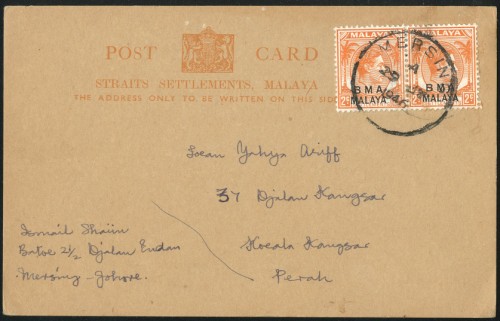 POST CARD
STRAITS SETTLEMENTS, MALAYA
THE ADDRESS ONLY TO BE WRITTEN ON THIS SIDE
MALAYA
BMA
MALAYA
MALAYA
BMA
MALAYA
MERSING
A
Toean Yahya Ariff
37 Djalan Kangsar
Koeala Kangsar
Perah
Ismail Shaiin
Batoe 2½ Djalan Endau
Mersing - Johore.